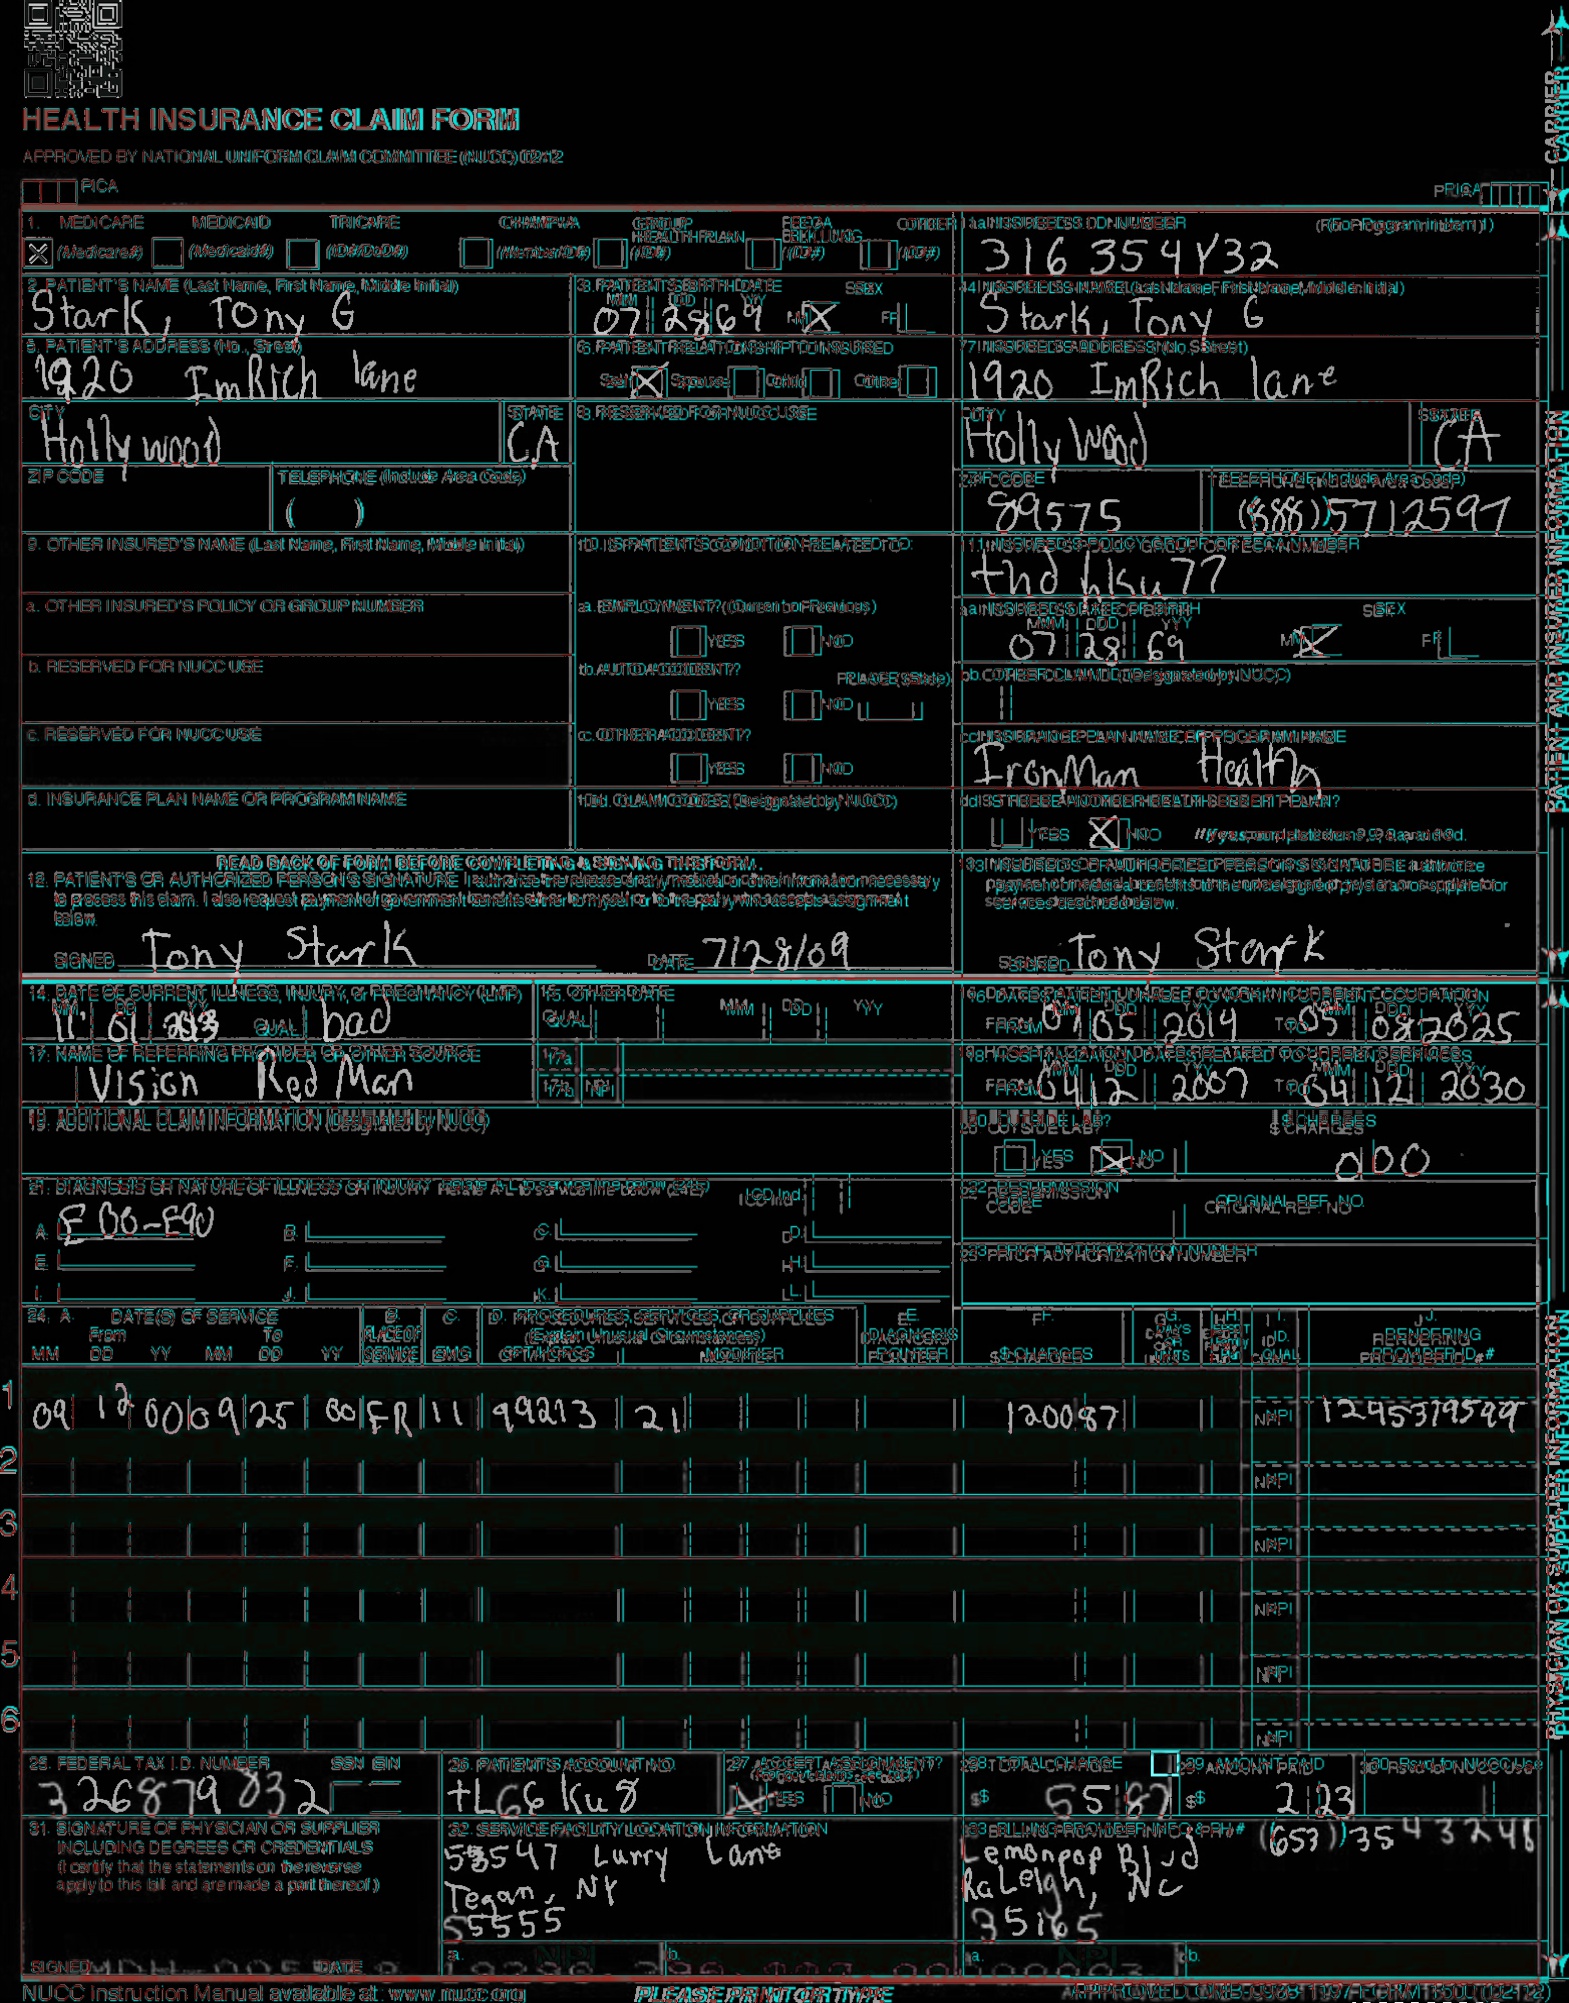 HEALTH INSURANCE CLAIM FORM
APPROVED BY NATIONAL UNIFORM CLAIM COMMITTEE (NUCC) 02/12
PICA
PICA
CARRIER
1. MEDICARE MEDICAID TRICARE CHAMPVA GROUP HEALTH PLAN FECA BLK LUNG OTHER
(Medicare#) (Medicaid#) (ID#/DoD#) (Member ID#) (ID#) (ID#) (ID#)
1a. INSURED'S I.D. NUMBER (For Program in Item 1)
316 354Y32
2. PATIENT'S NAME (Last Name, First Name, Middle Initial)
Stark, Tony G
3. PATIENT'S BIRTH DATE SEX
MM DD YY
07 28 69 M F
4. INSURED'S NAME (Last Name, First Name, Middle Initial)
Stark, Tony G
5. PATIENT'S ADDRESS (No., Street)
1920 ImRich lane
6. PATIENT RELATIONSHIP TO INSURED
Self Spouse Child Other
7. INSURED'S ADDRESS (No., Street)
1920 ImRich lane
CITY STATE
Hollywood CA
8. RESERVED FOR NUCC USE
CITY STATE
Hollywood CA
ZIP CODE TELEPHONE (Include Area Code)
( )
ZIP CODE TELEPHONE (Include Area Code)
89575 (888) 5712597
9. OTHER INSURED'S NAME (Last Name, First Name, Middle Initial)
10. IS PATIENT'S CONDITION RELATED TO:
11. INSURED'S POLICY GROUP OR FECA NUMBER
thd hku77
a. OTHER INSURED'S POLICY OR GROUP NUMBER
a. EMPLOYMENT? (Current or Previous)
YES NO
a. INSURED'S DATE OF BIRTH SEX
MM DD YY
07 28 69 M F
b. RESERVED FOR NUCC USE
b. AUTO ACCIDENT? PLACE (State)
YES NO
b. OTHER CLAIM ID (Designated by NUCC)
c. RESERVED FOR NUCC USE
c. OTHER ACCIDENT?
YES NO
c. INSURANCE PLAN NAME OR PROGRAM NAME
IronMan Health
d. INSURANCE PLAN NAME OR PROGRAM NAME
10d. CLAIM CODES (Designated by NUCC)
d. IS THERE ANOTHER HEALTH BENEFIT PLAN?
YES NO If yes, complete items 9, 9a, and 9d.
PATIENT AND INSURED INFORMATION
READ BACK OF FORM BEFORE COMPLETING & SIGNING THIS FORM.
12. PATIENT'S OR AUTHORIZED PERSON'S SIGNATURE I authorize the release of any medical or other information necessary
to process this claim. I also request payment of government benefits either to myself or to the party who accepts assignment
below.
SIGNED Tony Stark DATE 7/28/09
13. INSURED'S OR AUTHORIZED PERSON'S SIGNATURE I authorize
payment of medical benefits to the undersigned physician or supplier for
services described below.
SIGNED Tony Stark
14. DATE OF CURRENT ILLNESS, INJURY, or PREGNANCY (LMP)
MM DD YY
11 01 2013 QUAL. bad
15. OTHER DATE
QUAL. MM DD YY
16. DATES PATIENT UNABLE TO WORK IN CURRENT OCCUPATION
MM DD YY MM DD YY
FROM 05 2019 TO 05 08 2025
17. NAME OF REFERRING PROVIDER OR OTHER SOURCE
Vision Red Man
17a.
17b. NPI
18. HOSPITALIZATION DATES RELATED TO CURRENT SERVICES
MM DD YY MM DD YY
FROM 04 12 2007 TO 04 12 2030
19. ADDITIONAL CLAIM INFORMATION (Designated by NUCC)
20. OUTSIDE LAB? $ CHARGES
YES NO 000
21. DIAGNOSIS OR NATURE OF ILLNESS OR INJURY Relate A-L to service line below (24E) ICD Ind.
A. E00-E90 B. C. D.
E. F. G. H.
I. J. K. L.
22. RESUBMISSION CODE ORIGINAL REF. NO.
23. PRIOR AUTHORIZATION NUMBER
24. A. DATE(S) OF SERVICE B. C. D. PROCEDURES, SERVICES, OR SUPPLIES E. F. G. H. I. J.
From To PLACE OF (Explain Unusual Circumstances) DIAGNOSIS DAYS OR UNITS ID. RENDERING
MM DD YY MM DD YY SERVICE EMG CPT/HCPCS MODIFIER POINTER $ CHARGES QUAL. PROVIDER ID. #
1 09 12 00 09 25 00 ER 11 99213 21 12087 NPI 1295379599
2 NPI
3 NPI
4 NPI
5 NPI
6 NPI
PHYSICIAN OR SUPPLIER INFORMATION
25. FEDERAL TAX I.D. NUMBER SSN EIN
326879832
26. PATIENT'S ACCOUNT NO.
tL66ku8
27. ACCEPT ASSIGNMENT?
(For govt. claims, see back)
YES NO
28. TOTAL CHARGE
$ 55 87
29. AMOUNT PAID
$ 2 23
30. Rsvd for NUCC Use
31. SIGNATURE OF PHYSICIAN OR SUPPLIER
INCLUDING DEGREES OR CREDENTIALS
(I certify that the statements on the reverse
apply to this bill and are made a part thereof.)
SIGNED DATE
32. SERVICE FACILITY LOCATION INFORMATION
58547 Lurry Lane
Tegan, NY
55555
a. b.
33. BILLING PROVIDER INFO & PH # (653) 3543248
Lemonpop Blvd
RaLeigh, NC
35165
a. b.
NUCC Instruction Manual available at: www.nucc.org
PLEASE PRINT OR TYPE